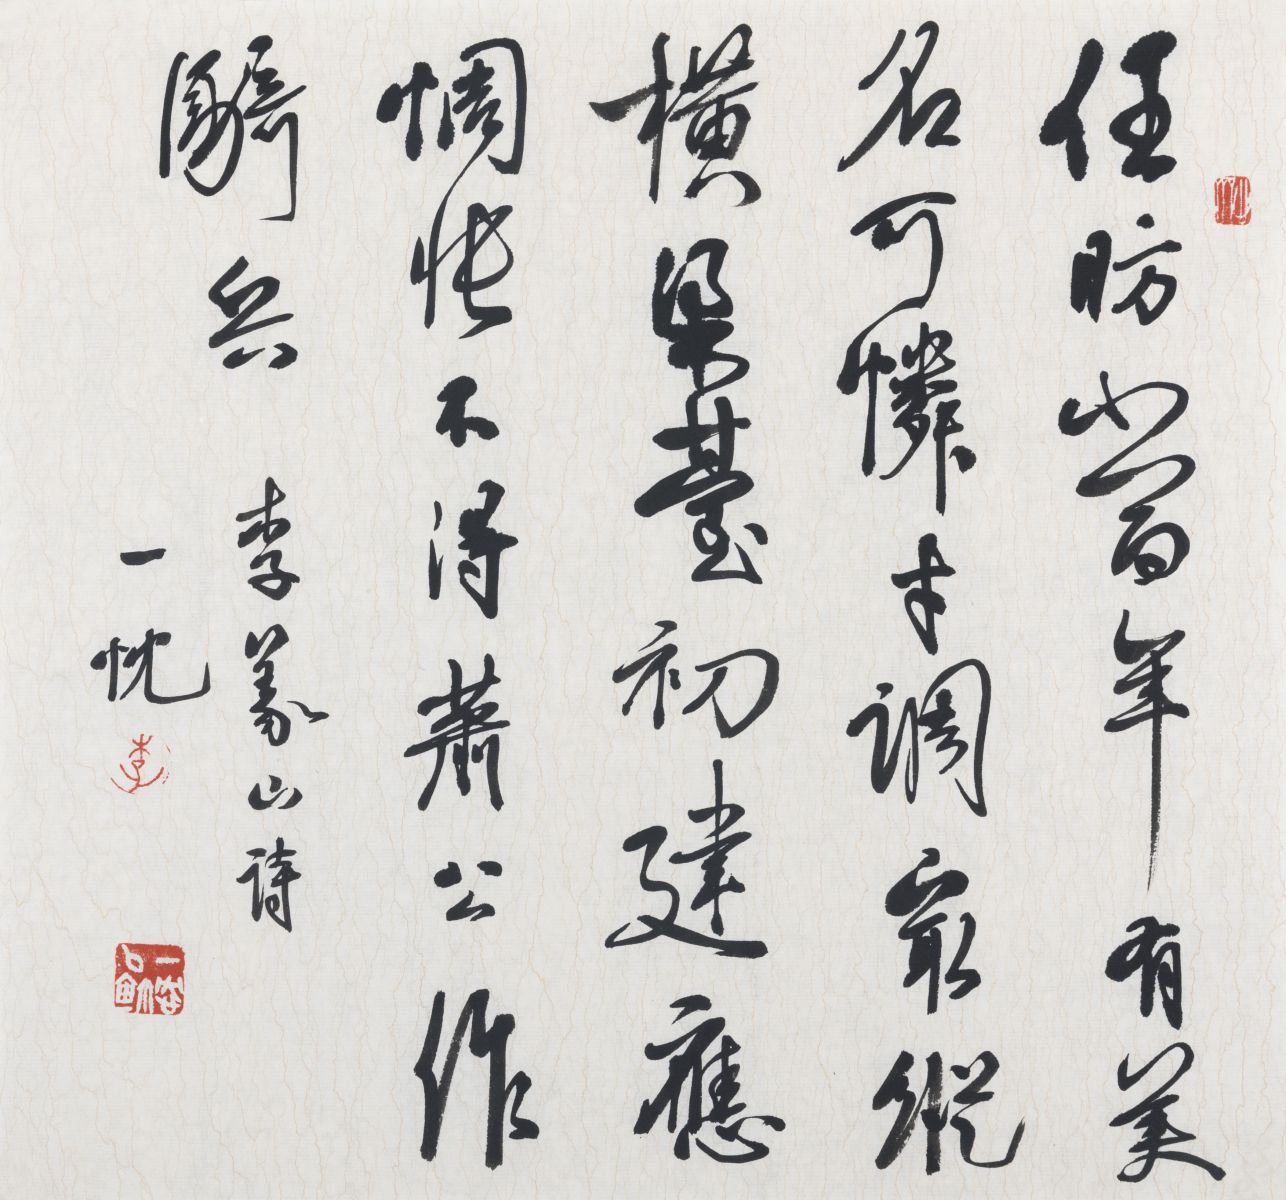 任昉當年有美
名可憐才調最縱
橫梁臺初建應
惆悵不得蕭公作
騎兵 李義山詩
一忱
李